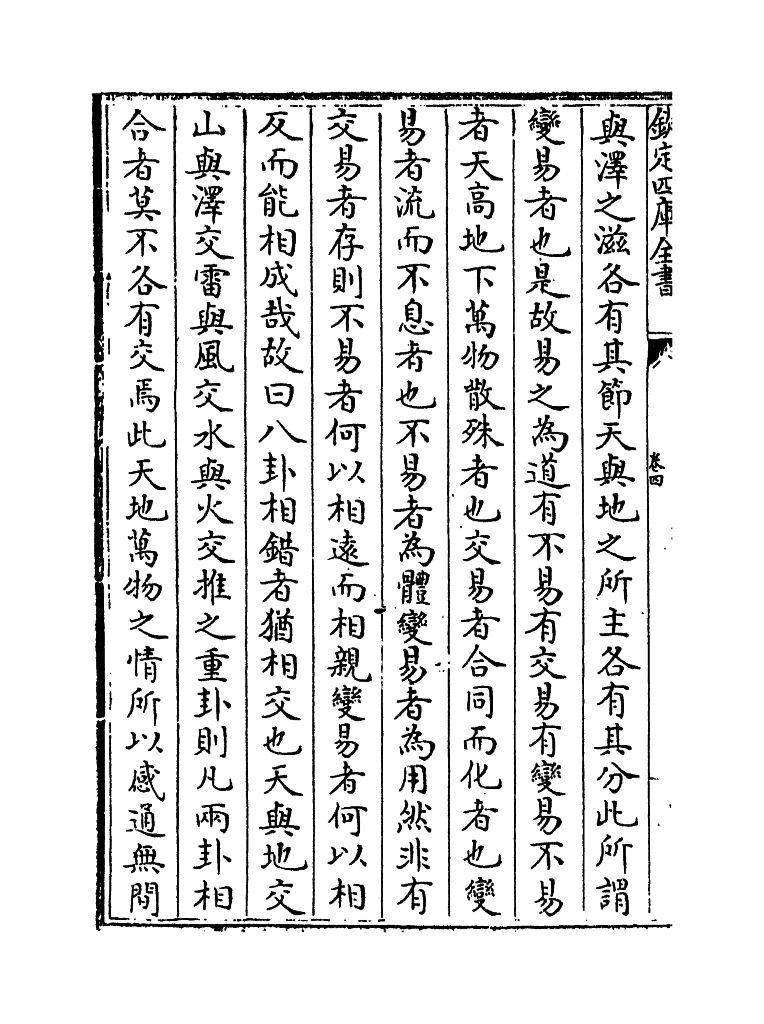 欽定四庫全書
卷四
與澤之滋各有其節天與地之所主各有其分此所謂
變易者也是故易之為道有不易有交易有變易不易
者天高地下萬物散殊者也交易者合同而化者也變
易者流而不息者也不易者為體變易者為用然非有
交易者存則不易者何以相遠而相親變易者何以相
反而能相成哉故曰八卦相錯者猶相交也天與地交
山與澤交雷與風交水與火交推之重卦則凡兩卦相
合者莫不各有交焉此天地萬物之情所以感通無間